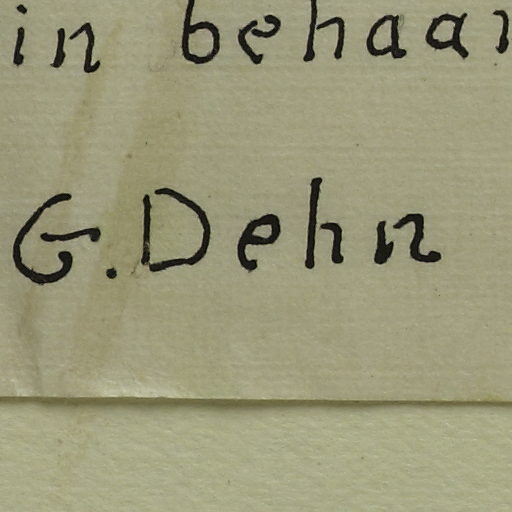 in behaar
G. Dehn